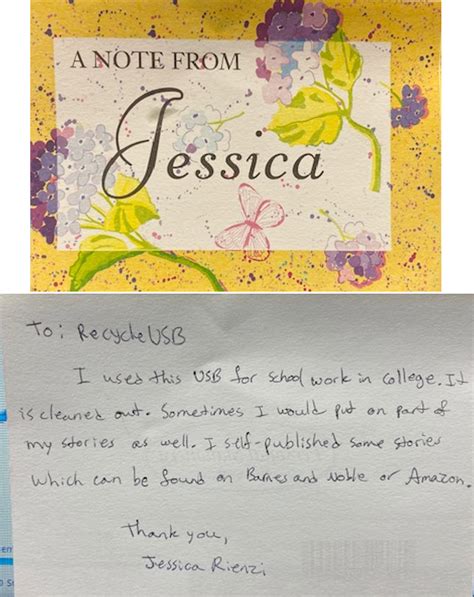 A NOTE FROM
Jessica
To: RecycleUSB
I used this USB for school work in college. It
is cleaned out. Sometimes I would put on part of
my stories as well. I self-published some stories
which can be found on Barnes and Noble or Amazon.
Thank you,
Jessica Rienzi